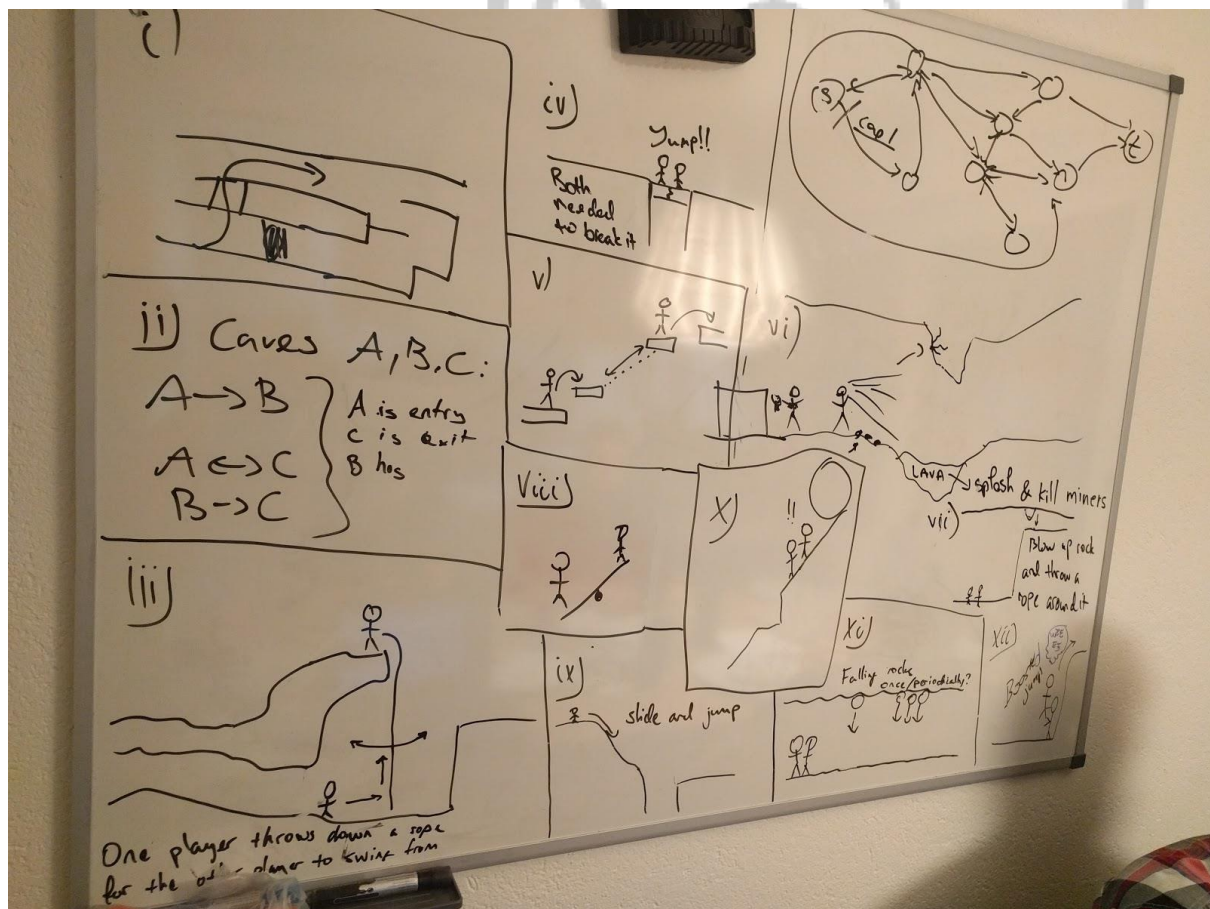 i)
ii) Caves A, B, C:
A → B
A ↔ C
B → C
A is entry
C is exit
B has
iii)
One player throws down a rope
for the other player to swing from
iv)
Jump!!
Both
needed
to break it
v)
(s)
cap 1
(t)
vi)
LAVA → splash & kill miners
vii)
Blow up rock
and throw a
rope around it
viii)
ix)
slide and jump
x)
!!
xi)
Falling rocks
once/periodically?
xii)
Boosted
jump!